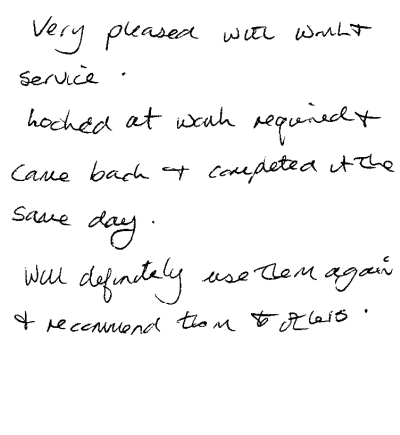 Very pleased with work +
service.
Looked at work required +
came back + completed it the
same day.
Will definately use them again
+ recommend them to others.